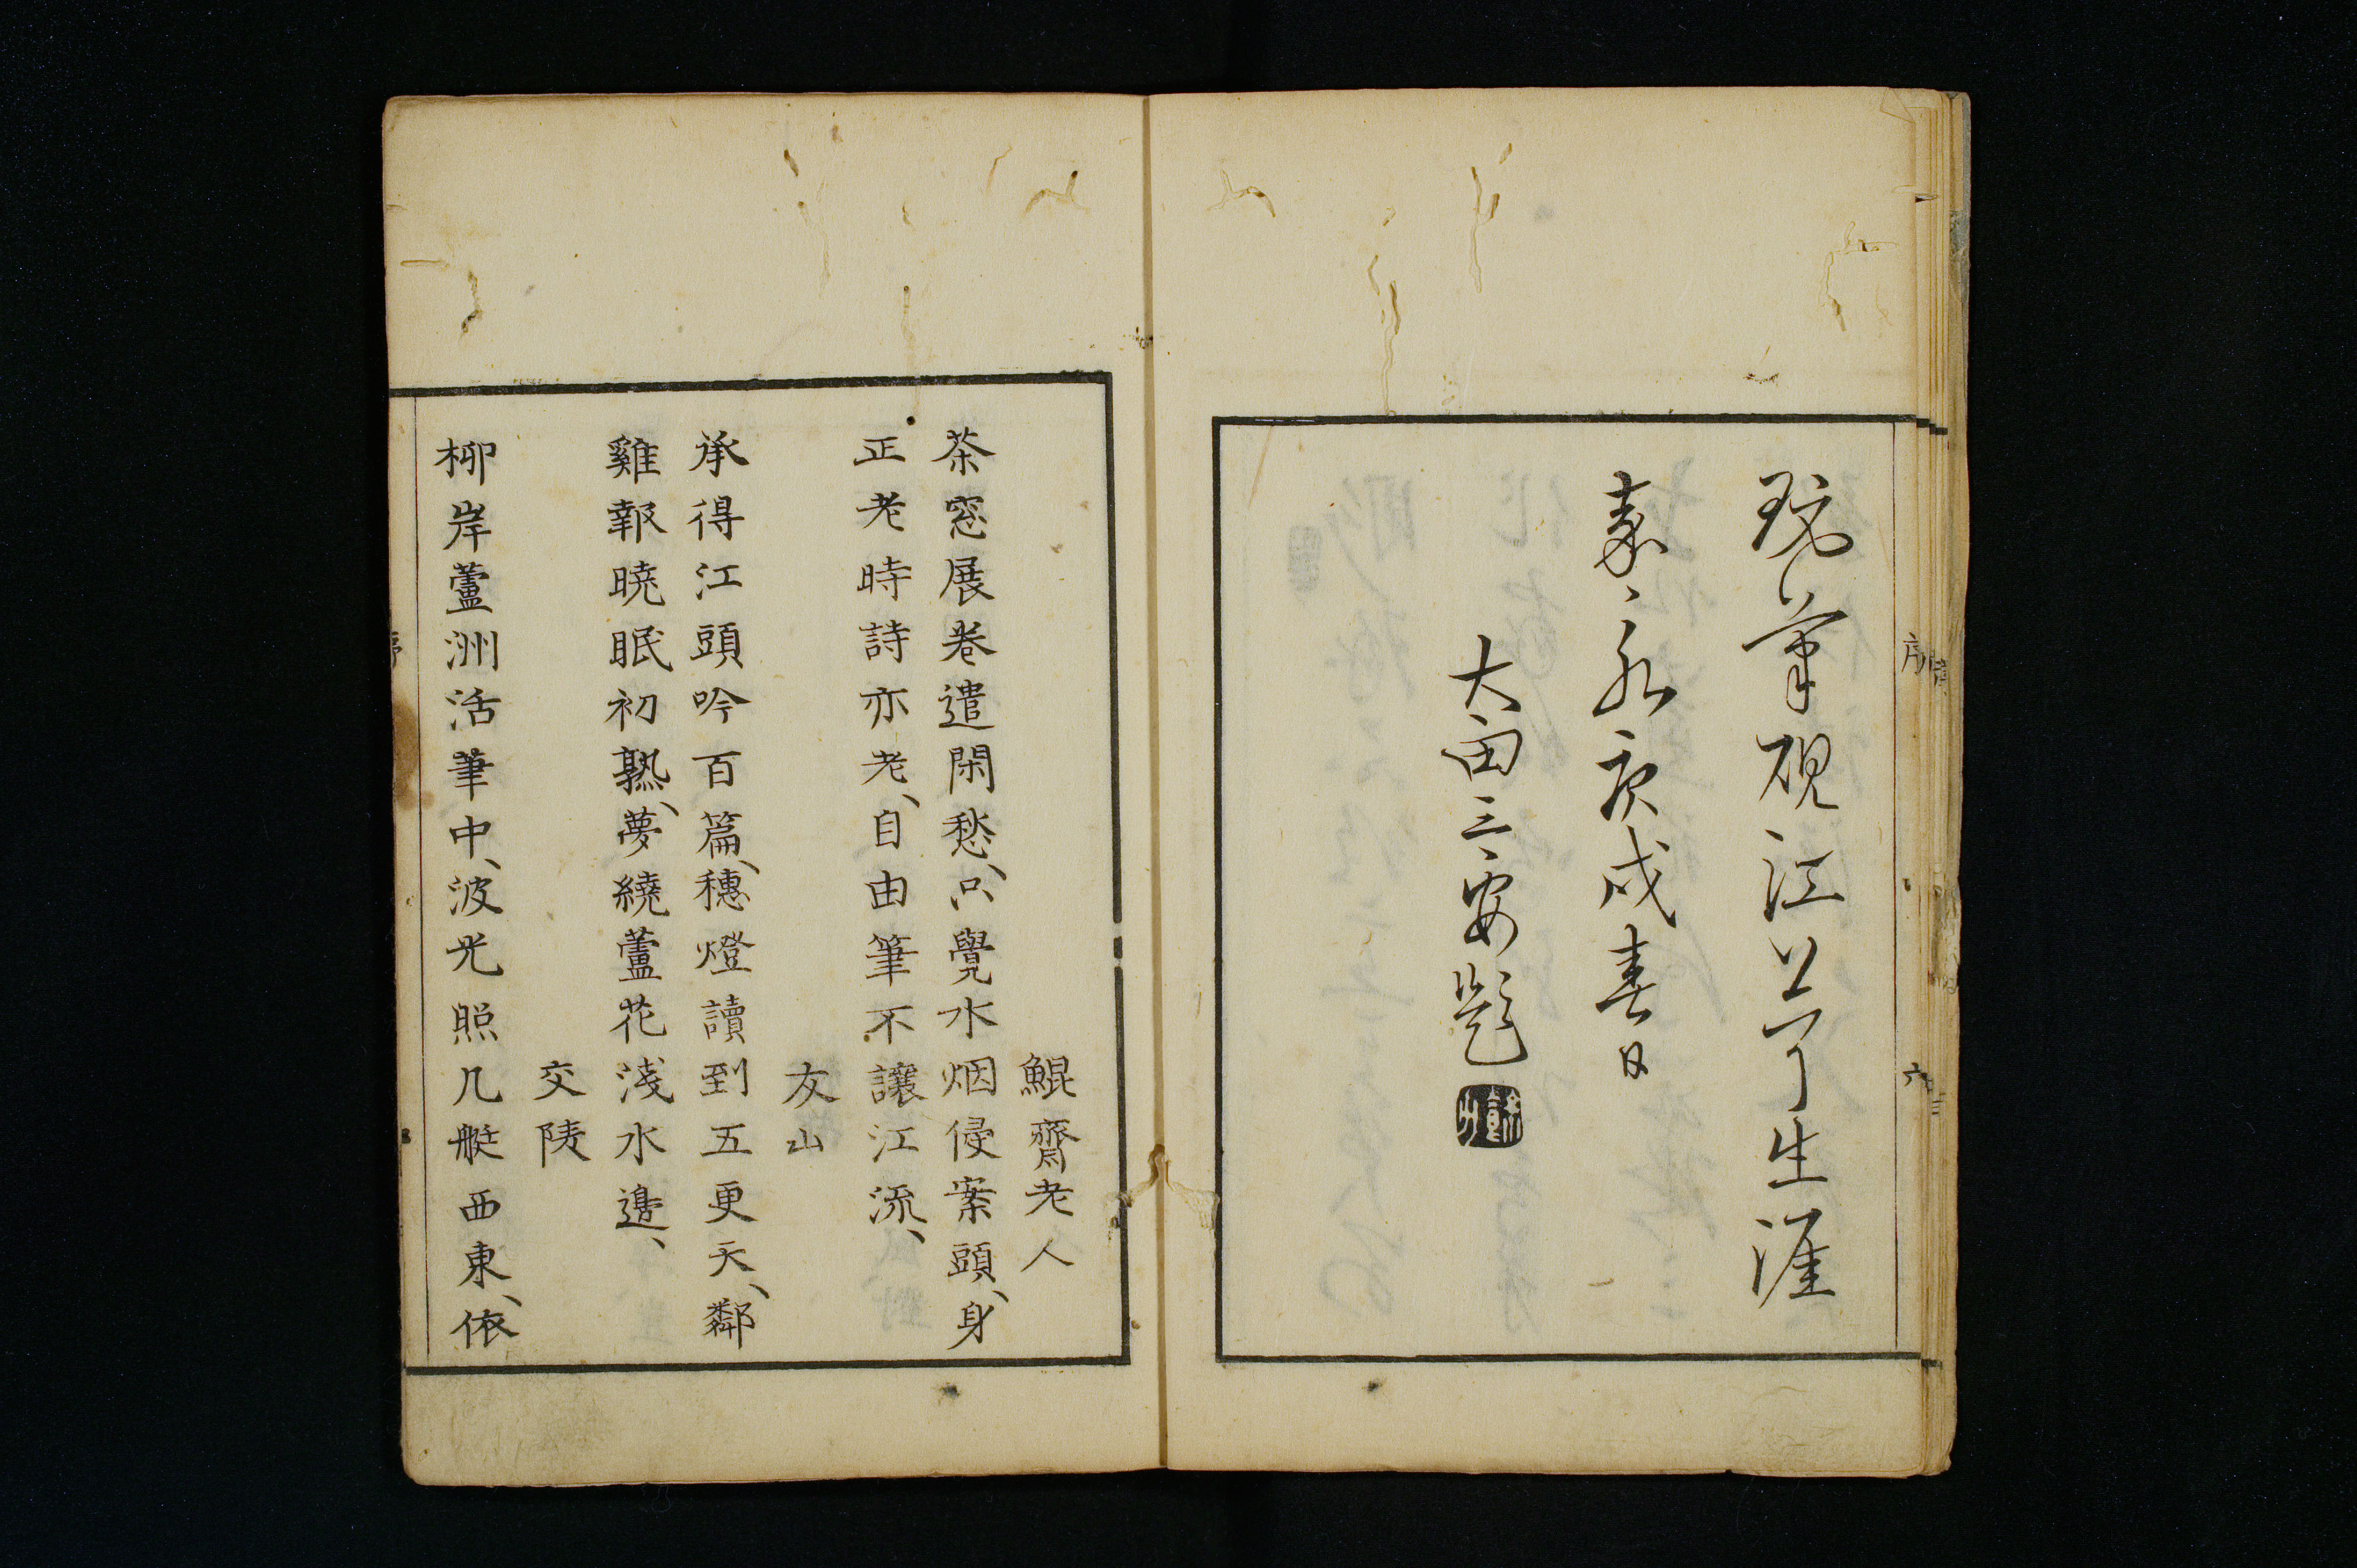 筆硯江上了生涯
嘉永庚戌春日
大田三安題
序
六
鯤齋老人
茶窓展卷遣閑愁、只覺水烟侵案頭、身
正老時詩亦老、自由筆不讓江流、
友山
承得江頭吟百篇、穗燈讀到五更天、鄰
雞報曉眠初熟、夢繞蘆花淺水邊、
交陵
柳岸蘆洲活筆中、波光照几艇西東、依